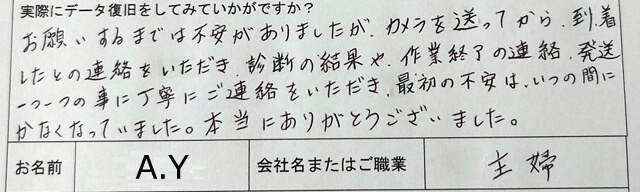 実際にデータ復旧をしてみていかがですか？
お願いするまでは不安がありましたが、カメラを送ってから、到着
したとの連絡をいただき、診断の結果や、作業終了の連絡、発送
一つ一つの事に丁寧にご連絡をいただき、最初の不安は、いつの間に
かなくなっていました。本当にありがとうございました。
お名前 A.Y 会社名またはご職業 主婦